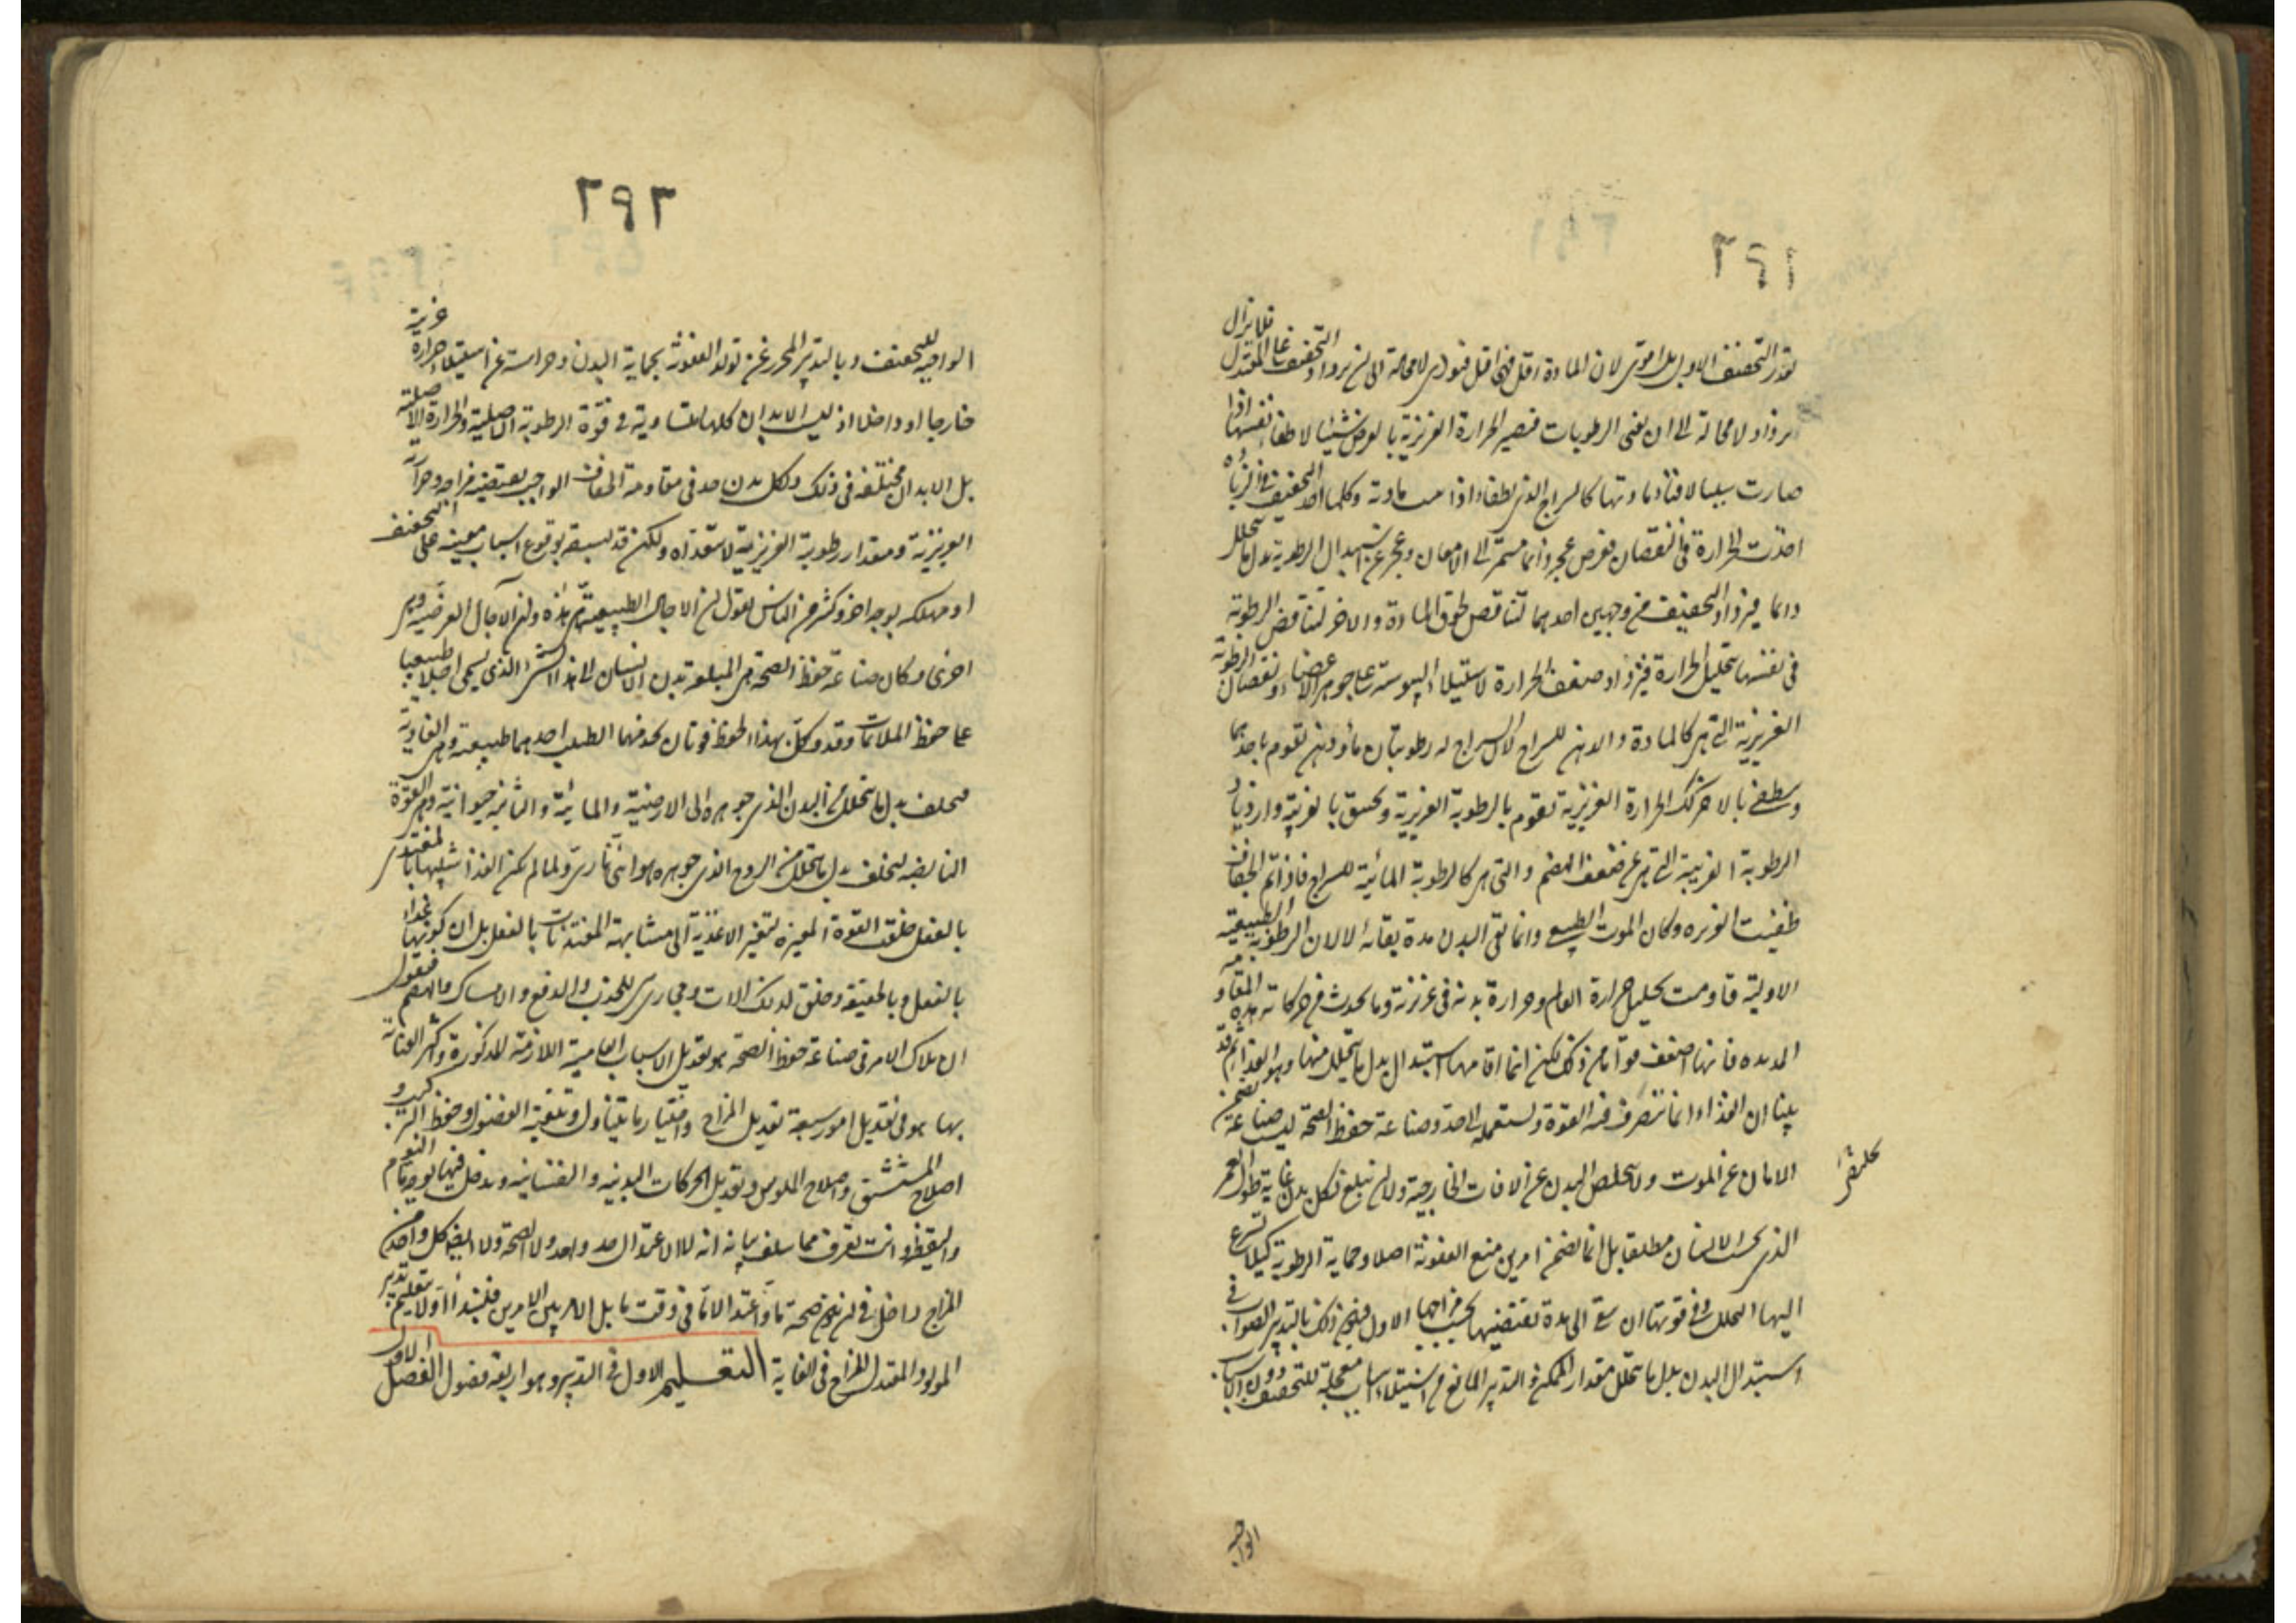 ٢٩١
التجفيف الاول بل اقوى لان المادة اقل فهي اقبل فيؤدي لامحالة الى ان يزداد التجفيف على المعتدل فلا يزال
يزداد لا محالة الى ان تفنى الرطوبات فتصير الحرارة الغريزية بالعرض سببا لاطفاء نفسها اذا
صارت سببا لافناء مادتها كالسراج الذي يطفأ اذا مادته وكلما اخذ التجفيف في الزيادة
اخذت الحرارة في النقصان فعرض عجز دائما مستمر الى الامعان وعجز عن استبدال الرطوبة بدل ما يتحلل
دائما فيزداد التجفيف من وجهين احدهما لتناقص لحوق المادة والاخر لتناقص الرطوبة
في نفسها بتحليل الحرارة فيزداد ضعف الحرارة لاستيلاء اليبوسة على جوهر الاعضاء ونقصان الرطوبة
الغريزية التي هي كالمادة والدهن للسراج لان السراج له رطوبتان ماء ودهن تقوم باحدهما
وتنطفئ بالاخر كذلك الحرارة الغريزية تقوم بالرطوبة الغريزية وتختنق بالغريبة وازدياد
الرطوبة الغريبة التي هي عن ضعف الهضم والتي هي كالرطوبة المائية للسراج فاذا تم الجفاف
طفئت الغريزة وكان الموت الطبيعي وانما بقي البدن مدة بقائه لا لان الرطوبة الطبيعية
الاولية قاومت تحليل حرارة العالم وحرارة بدنه في غريزته وما يحدث من حركاته هذه المقاومة
المديدة فانها اضعف مقاومة من ذلك لكن انما اقامها استبدال بدل ما يتحلل منها وهو الغذاء ثم قد
بينا ان الغذاء انما تتصرف فيه القوة وتستعمله الى حد وصناعة حفظ الصحة ليست صناعة تضمن
الامان عن الموت ولا تخلص البدن عن الافات الخارجية ولا ان تبلغ بكل بدن غاية طول العمر
الذي يحب الانسان مطلقا بل انما تضمن امرين منع العفونة اصلا وحماية الرطوبة كيلا تسرع
اليها التحلل وفي قوتها ان تبقى الى مدة تقتضيها بحسب مزاجها الاول ويكون ذلك بالتدبير الصواب في
استبدال البدن بدل ما يتحلل مقدار الممكن والتدبير المانع من استيلاء اسباب معجلة للتجفيف دون الاسباب
الواجبة
٢٩٢
الواجبة للتجفيف وبالتدبير المحرز عن تولد العفونة بحماية البدن وحراسته عن استيلاء حرارة غريبة
خارجا او داخلا اذ ليست الابدان كلها متساوية في قوة الرطوبة الاصلية والحرارة الاصلية
بل الابدان مختلفة في ذلك ولكل بدن حد في مقاومة الجفاف الواجب يقتضيه مزاجه وحرارته
الغريزية ومقدار رطوبته الغريزية لا يتعداه ولكن قد يسبقه بوقوع اسباب معينة على التجفيف
او مهلكة بوجه اخر وكثير من الناس يقول ان الاجال الطبيعية هي هذه وان الآجال العرضية هي
اخرى وكان صناعة حفظ الصحة هي المبلغة بدن الانسان الى هذا السن الذي يسمى اجلا طبيعيا
على حفظ الملائمات وقد وكل بهذا الحفظ قوتان يخدمهما الطبيب احدهما طبيعية وهي الغاذية
فتخلف بدل ما يتحلل من البدن الذي جوهره الى الارضية والمائية والثانية حيوانية وهي القوة
النابضة لتخلف بدل ما يتحلل من الروح الذي جوهره هوائي ناري ولما لم يكن الغذاء شبيها بالمغتذي
بالفعل خلقت القوة المغيرة لتغير الاغذية الى مشابهة المغتذيات بالفعل بل الى كونها غذاء
بالفعل وبالحقيقة وخلق لذلك الات ومجاري هي للجذب والدفع والامساك والهضم فنقول
ان ملاك الامر في صناعة حفظ الصحة هو تعديل الاسباب العامية اللازمة المذكورة واكثر العناية
بها هو في تعديل امور سبعة تعديل المزاج واختيار ما يتناول وتنقية الفضول وحفظ التركيب و
اصلاح المستنشق واصلاح الملبوس وتعديل الحركات البدنية والنفسانية ويدخل فيها بوجه ما النوم
واليقظة وانت تعرف مما سلف بيانه انه لا الاعتدال حد واحد ولا الصحة ولا ايضا كل واحد من
المزاج داخل في ان يكون صحة ما واعتدالا ما في وقت ما بل الامر بين الامرين فلنبدأ اولا بتعليم تدبير
المولود المعتدل المزاج في الغاية التعليم الاول في التدبير وهو اربعة فصول الفصل الاول